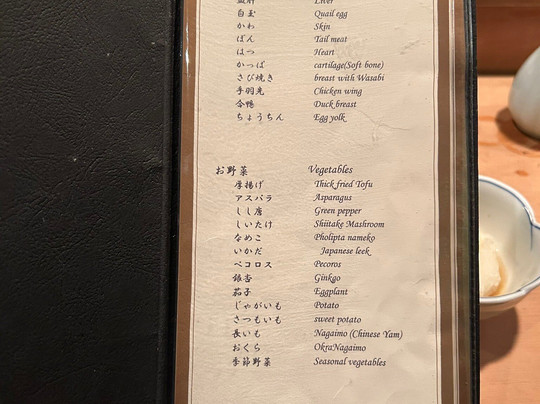 血肝 Liver
白玉 Quail egg
かわ Skin
ぼん Tail meat
はつ Heart
かっぱ cartilage(Soft bone)
さび焼き breast with Wasabi
手羽先 Chicken wing
合鴨 Duck breast
ちょうちん Egg yolk
お野菜 Vegetables
厚揚げ Thick fried Tofu
アスパラ Asparagus
しし唐 Green pepper
しいたけ Shiitake Mashroom
なめこ Pholipta nameko
いかだ Japanese leek
ペコロス Pecoros
銀杏 Ginkgo
茄子 Eggplant
じゃがいも Potato
さつもいも sweet potato
長いも Nagaimo (Chinese Yam)
おくら OkraNagaimo
季節野菜 Seasonal vegetables